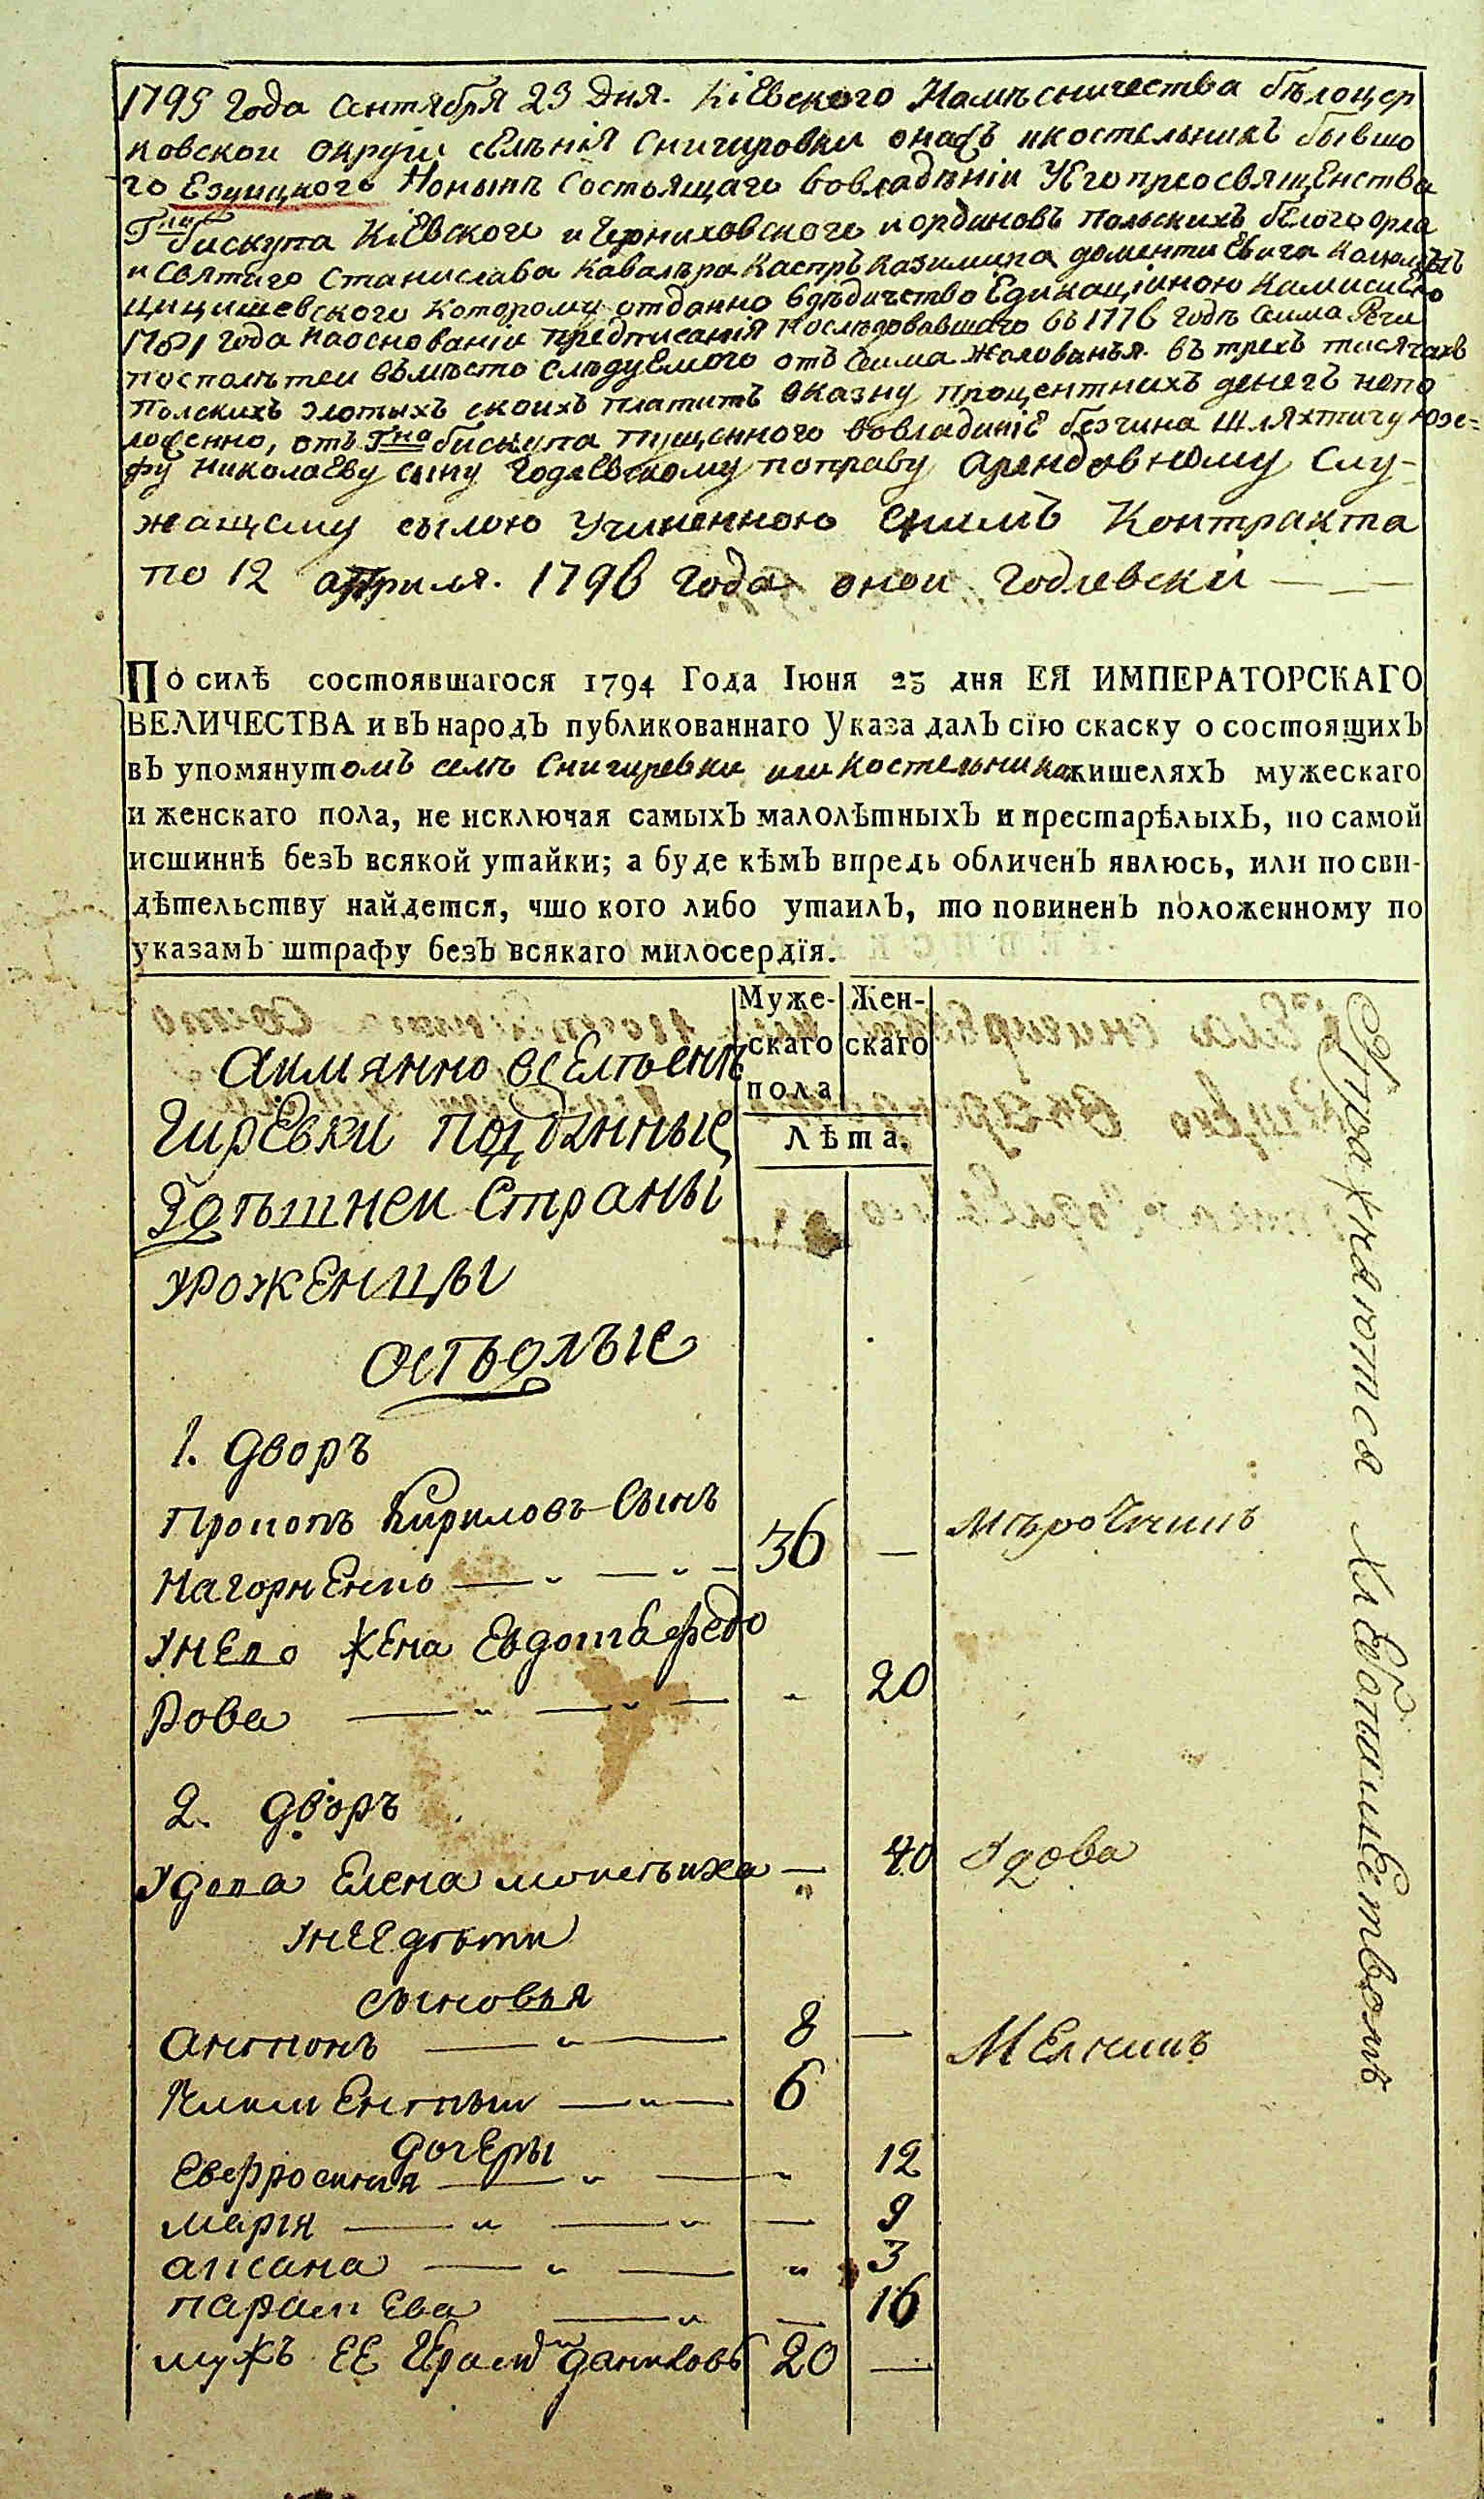 1795 Года Сентября 23 Дня. КіЕвского Намѣсничества бѣлоцер
ковскои Округи сЕлѣнія Снигировки онаѣ
костельникъ бывшо
го Езуицкого Ноныпѣ Состоящаго вовладѣніи УЕго преосвящЕнства
Гпдна бискупа КіЕвского и Черниховского и ординовъ польскихъ бѣлого орла
и Святаго Станислава Кавалѣра Каспръ Казимира доментиЕвича
Цицишевского Которому отданно вдѣдичество Едикаціиною Камисиею
1781 года наоснованіи предписанія послѣдовавшаго въ 1776 годѣ Сеима Рѣчи
посполѣтеи вѣмѣсто слѣдуЕмого отъ Сеима жалованья. въ трехъ тисячахъ
полскихъ злотыхъ скоихъ платитъ вказну процентнихъ денегъ непо
ложенно, отъ Гпна бискупа пущенного вовладиніе безчина шляхтичу Юзе=
фу Николаеву сыну Годлевскому поправу арендовному Слу-
жащему сылою Учиненною снимъ Контракта
по 12 априля. 1796 года онои Годлевскі
По силѣ состоявшагося 1794 Года Іюня 23 дня ЕЯ ИМПЕРАТОРСКАГО
ВЕЛИЧЕСТВА и въ народъ публикованнаго Указа далъ сїю скаску о состоящихъ
въ упомянутомъ селѣ Снигиревки или Костельника жишеляхъ мужескаго
и женскаго пола, не исключая самыхъ малолѣтныхъ и престарѣлыхъ, по самой
исшиннѣ безъ всякой утайки; а буде кѣмъ впредь обличенъ явлюсь, или по сви-
дѣтельству найдется, чшо кого либо утаилъ, то повиненъ положенному по
указамъ штрафу безъ всякаго милосердїя.
Муже-
скаго
пола
Жен-
скаго
Лѣта.
Аимянно вселѣсни
Гиревки подданные
Здѣшнеи Страны
урожЕнцы
осѣдлые
1. дворъ
Прокопъ Кириловъ Сынъ
НагорнЕнко — 36 —
мѣрочникъ
унего жЕна Евдокія федо
Рова — 20
2. дворъ
Удова Елена мокеѣиха — 40 Удова
унЕЕ дѣти
сыновья
антонъ — 8 —
МЕлникъ
КлимЕнтъи — 6
дочЕры
Евфросинія — 12
марія — 9
аксана — 3
параскЕва — 16
мужъ ЕЕ Даниловъ 20 —
Упражняются хлѣбопашЕствомъ